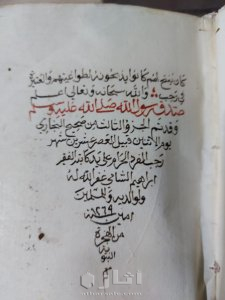 كان يمنح انهم كانوا يذبحونه لطواغيتهم والعتيرة
في رجب والله سبحانه وتعالى اعلم
صدق رسول الله صلى الله عليه وسلم
وقد تم الجزؤ الثالث من صحيح البخاري
يوم الاثنين قبيل العصر عشرين شهر
رجب الفرد الحرام على يد كاتبه الفقير
ابراهيم الشامي غفر الله له
ولوالديه وللمسلمين
امين سنة ١٢٦٩
من الهجرة
النبو
ية
م